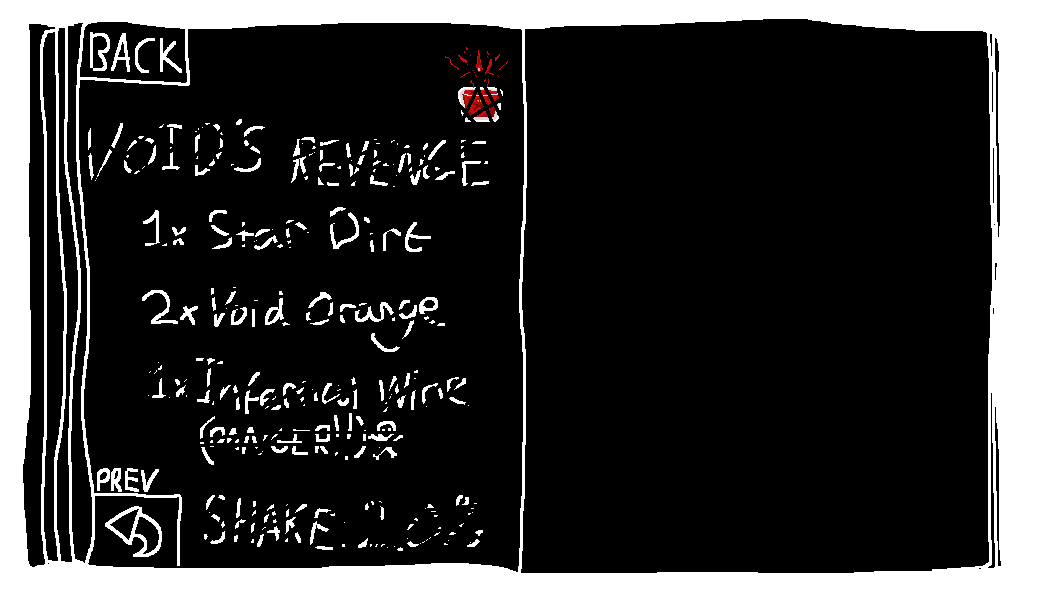 BACK
VOID'S REVENGE
1x Star Dirt
2x Void Orange
1x Infernal Wine
(DANGER!!)
PREV
SHAKE: